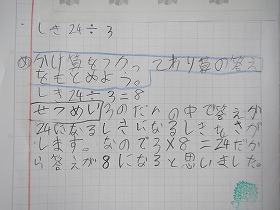 しき24÷3
めかけ算をつかってわり算の答え
をもとめよう。
しき24÷3=8
せつめい3のだんの中で答えが
24になるしきになるしきをさが
します。なので3×8=24だか
ら答えが8になると思いました。